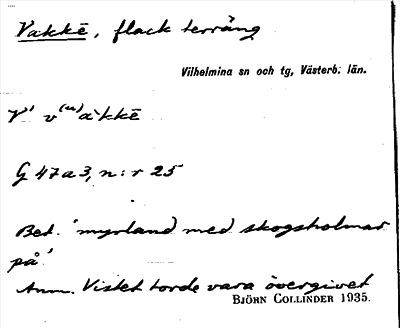 Vakkē, flack terräng
Vilhelmina sn och tg, Västerb. län.
V' v⁽ᵘ⁾a`kkē
G 47a3, n:r 25
Bet. 'myrland med skogsholmar
på'
Anm. Vistet torde vara övergivet
BJÖRN COLLINDER 1935.